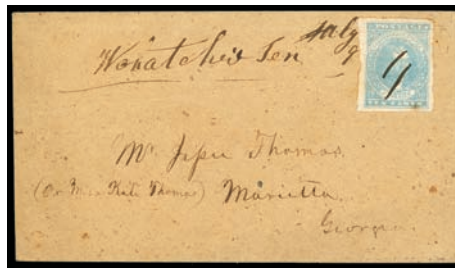 July
9
POSTAGE
TEN CENTS
Mr. Jesse Thomas
(Or Miss Kate Thomas) Marietta
Georgia